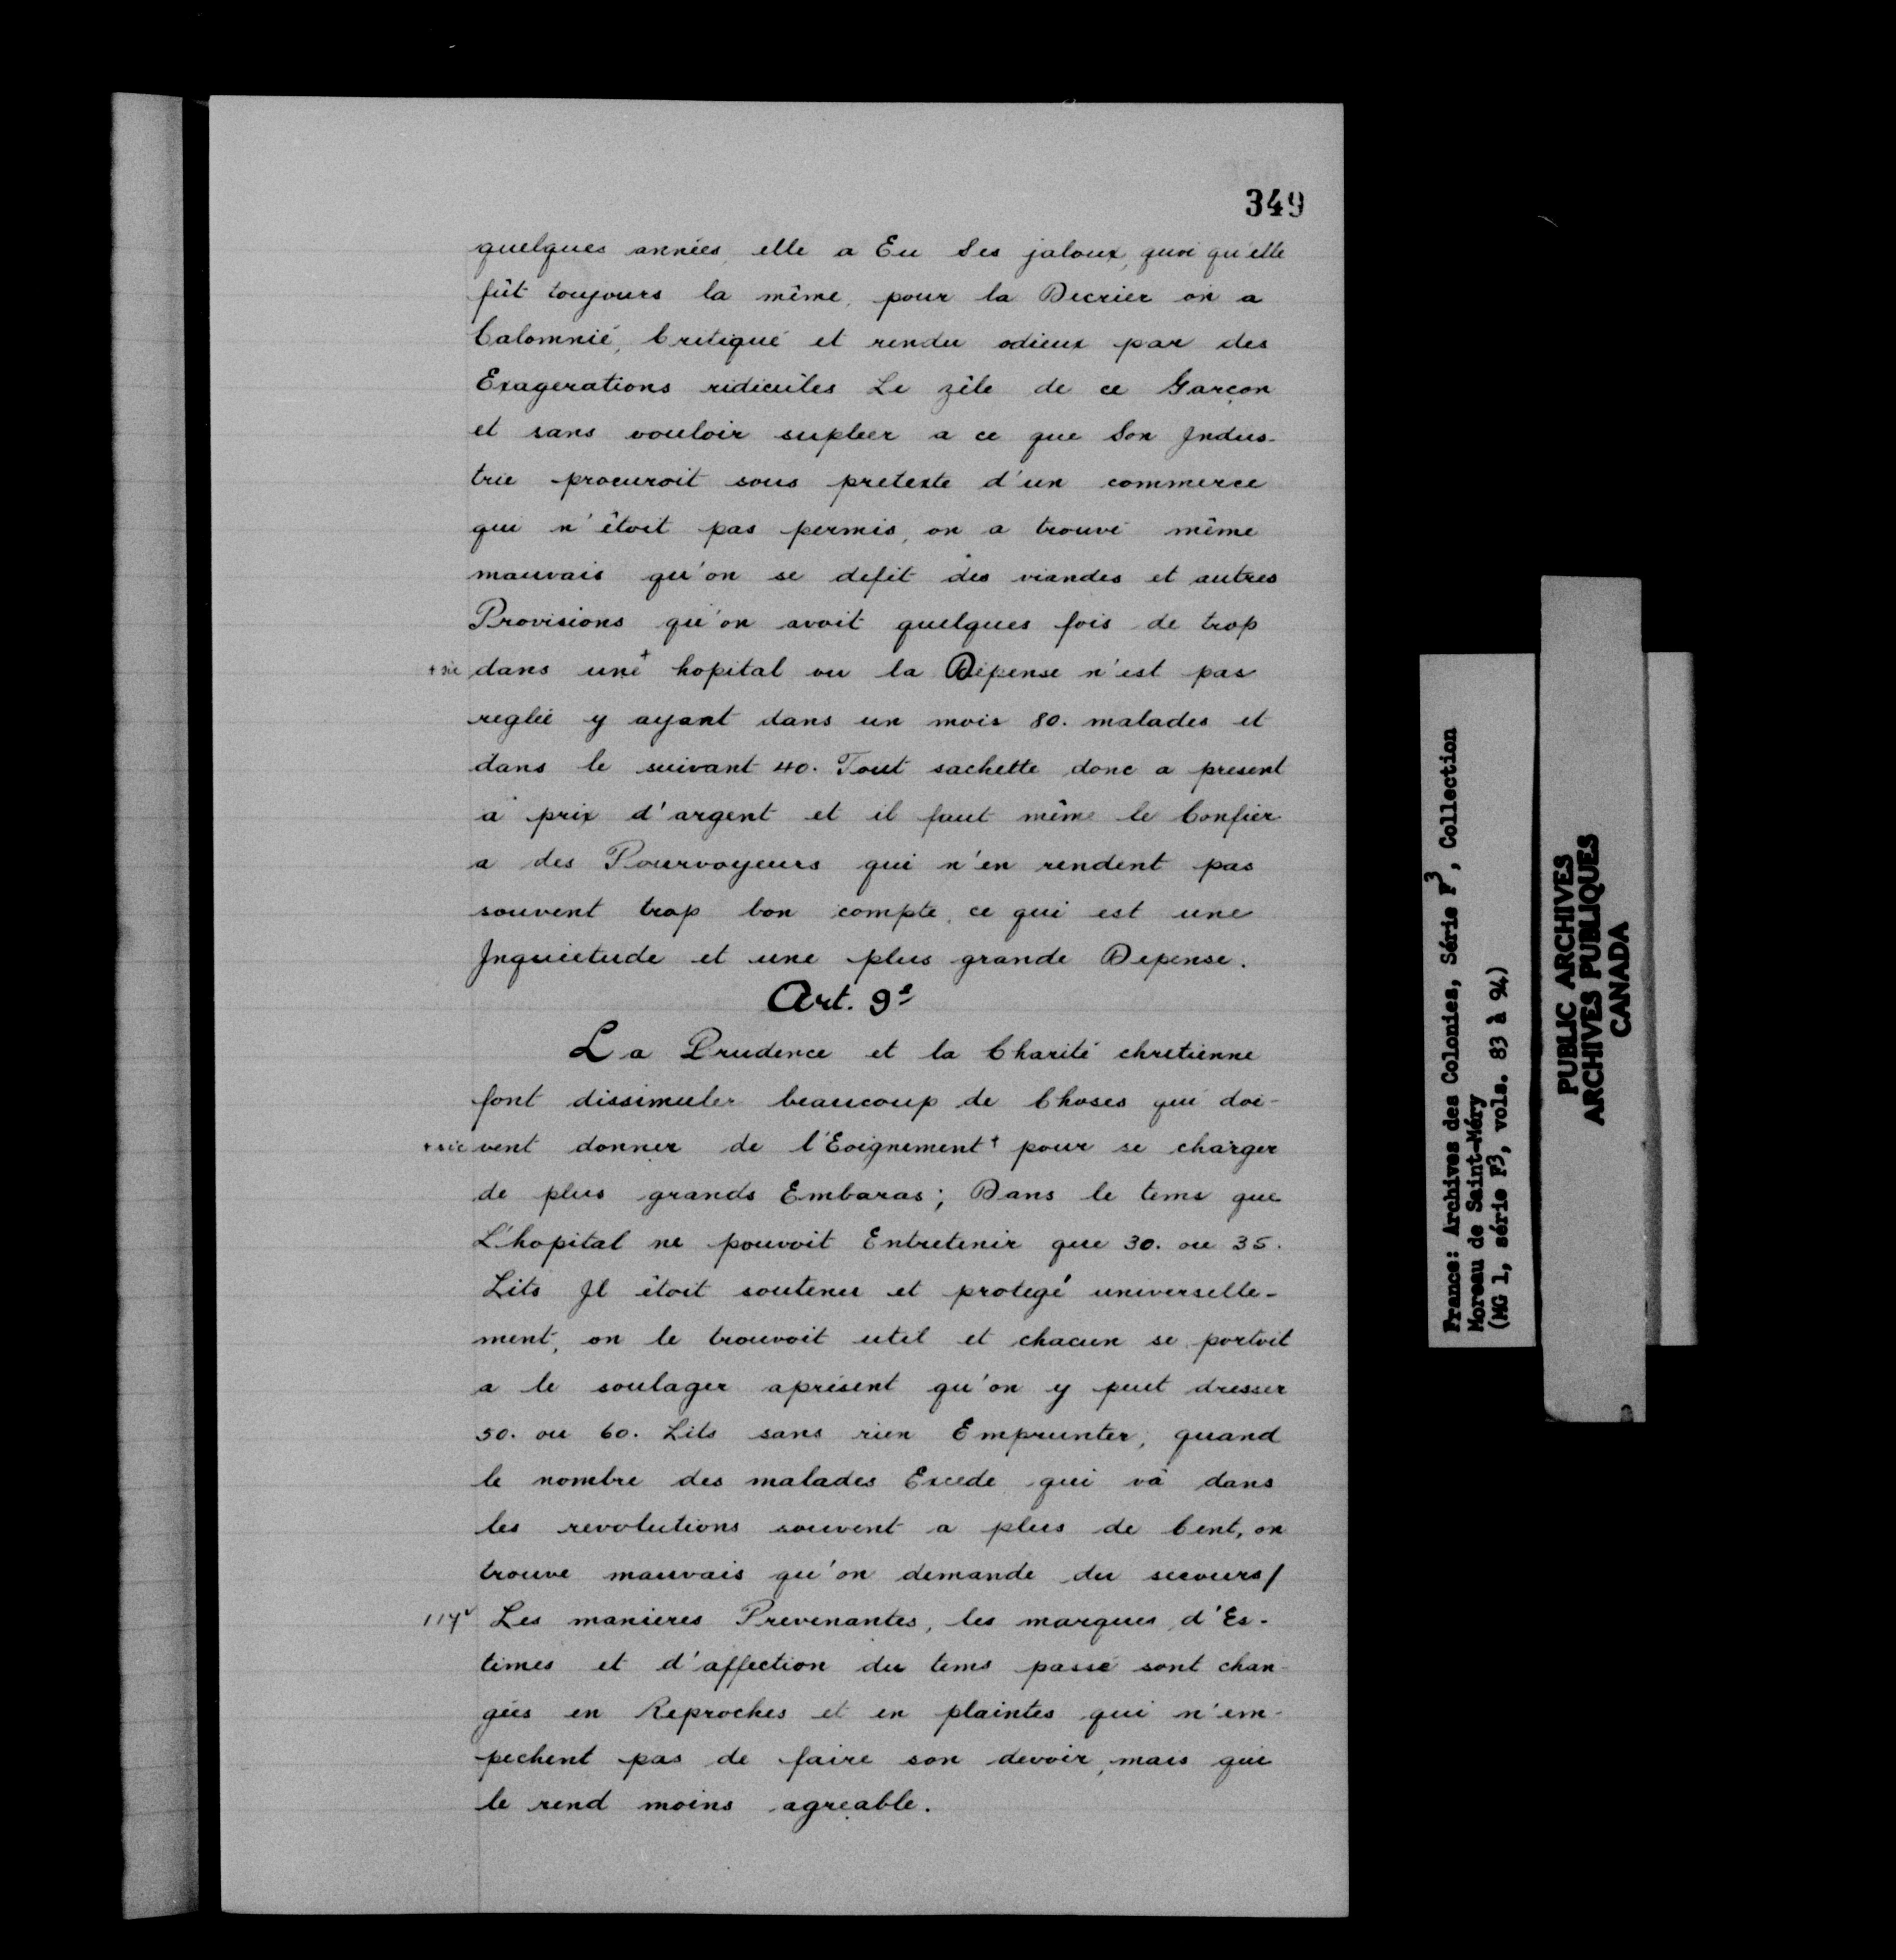 349
quelques années, elle a Eu Ses jaloux, quoi qu'elle
fût toujours la même, pour la Decrier on a
Calomnié, Critiqué et rendu odieux par des
Exagerations ridicûles Le zêle de ce Garçon
et sans vouloir supleer a ce que Son Indus-
trie procuroit sous pretexte d'un commerce
qui n'êtoit pas permis, on a trouvé même
mauvais qu'on se defit des viandes et autres
Provisions qu'on avoit quelques fois de trop
+ sic dans une+ hopital ou la Dépense n'est pas
reglée y ayant dans un mois 80. malades et
dans le suivant 40. Tout sachette donc a present
a prix d'argent et il faut même le Confier
a des Pourvoyeurs qui n'en rendent pas
souvent trop bon compte, ce qui est une
Inquietude et une plus grande Depense.
Art. 9e
La Prudence et la Charité chretienne
font dissimuler beaucoup de Choses qui doi-
+ sic vent donner de l'Eoignement+ pour se charger
de plus grands Embaras; Dans le tems que
L'hopital ne pouvoit Entretenir que 30. ou 35.
Lits Il êtoit soutenu et protegé universelle-
ment, on le trouvoit util et chacun se portoit
a le soulager aprésent qu'on y peut dresser
50. ou 60. Lits sans rien Emprunter, quand
le nombre des malades Excede qui va dans
les revolutions souvent a plus de Cent, on
trouve mauvais qu'on demande du secours/
117v Les manieres Prevenantes, les marques d'Es-
times et d'affection du tems passé sont chan-
gées en Reproches et en plaintes qui n'em-
pechent pas de faire son devoir, mais qui
le rend moins agreable.
France: Archives des Colonies, Série F3, Collection
Moreau de Saint-Méry
(MG 1, série F3, vols. 83 à 94)
PUBLIC ARCHIVES
ARCHIVES PUBLIQUES
CANADA